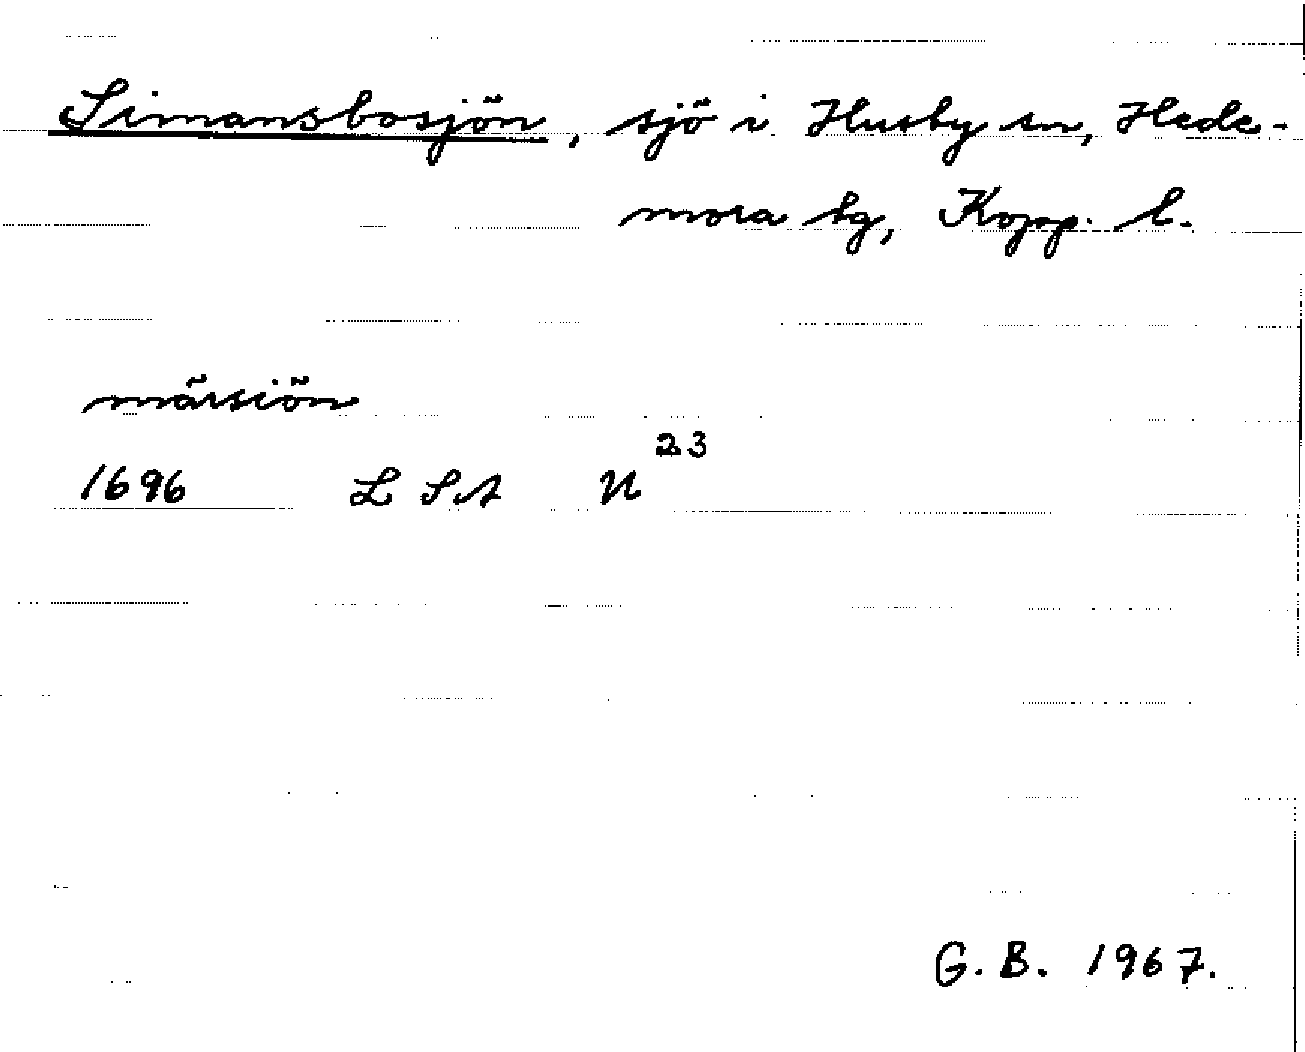 Simansbosjön, sjö i Husby sn, Hede-
mora tg, Kopp. l.
märsiön
1696 L St N 23
G. B. 1967.